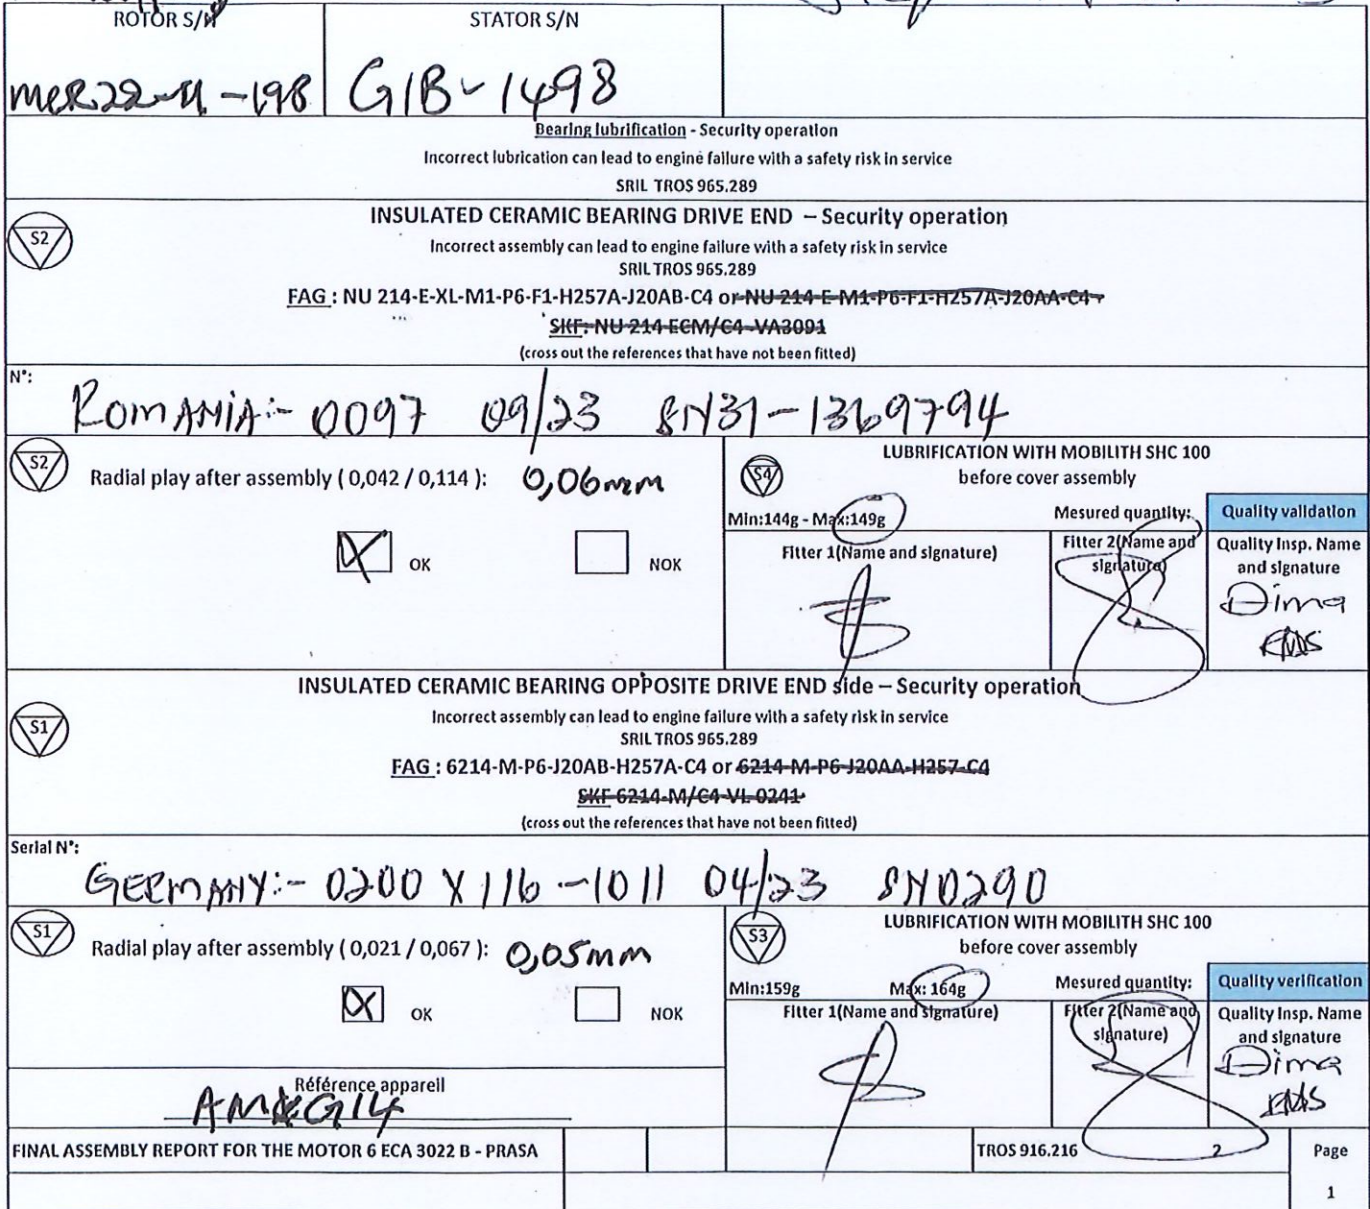 ROTOR S/N STATOR S/N
MCR22-11-198 GIB-1498
Bearing lubrification - Security operation
Incorrect lubrication can lead to engine failure with a safety risk in service
SRIL TROS 965.289
S2
INSULATED CERAMIC BEARING DRIVE END – Security operation
Incorrect assembly can lead to engine failure with a safety risk in service
SRIL TROS 965.289
FAG : NU 214-E-XL-M1-P6-F1-H257A-J20AB-C4 or NU 214-E-M1-P6-F1-H257A-J20AA-C4
SKF: NU 214 ECM/C4-VA3091
(cross out the references that have not been fitted)
N°:
ROMANIA:- 0097 09/23 SN31-1369794
S2
Radial play after assembly ( 0,042 / 0,114 ): 0,06mm
OK NOK
S4
LUBRIFICATION WITH MOBILITH SHC 100
before cover assembly
Min:144g - Max:149g Mesured quantity: Quality validation
Fitter 1(Name and signature) Fitter 2(Name and signature) Quality Insp. Name and signature
Dima
INSULATED CERAMIC BEARING OPPOSITE DRIVE END side – Security operation
S1
Incorrect assembly can lead to engine failure with a safety risk in service
SRIL TROS 965.289
FAG : 6214-M-P6-J20AB-H257A-C4 or 6214-M-P6-J20AA-H257-C4
SKF 6214-M/C4-VL 0241
(cross out the references that have not been fitted)
Serial N°:
GERMANY:- 0200 X116-1011 04/23 SN0290
S1
Radial play after assembly ( 0,021 / 0,067 ): 0,05mm
OK NOK
S3
LUBRIFICATION WITH MOBILITH SHC 100
before cover assembly
Min:159g Max: 164g Mesured quantity: Quality verification
Fitter 1(Name and signature) Fitter 2(Name and signature) Quality Insp. Name and signature
Dima
Référence appareil
FINAL ASSEMBLY REPORT FOR THE MOTOR 6 ECA 3022 B - PRASA TROS 916.216 2 Page
1